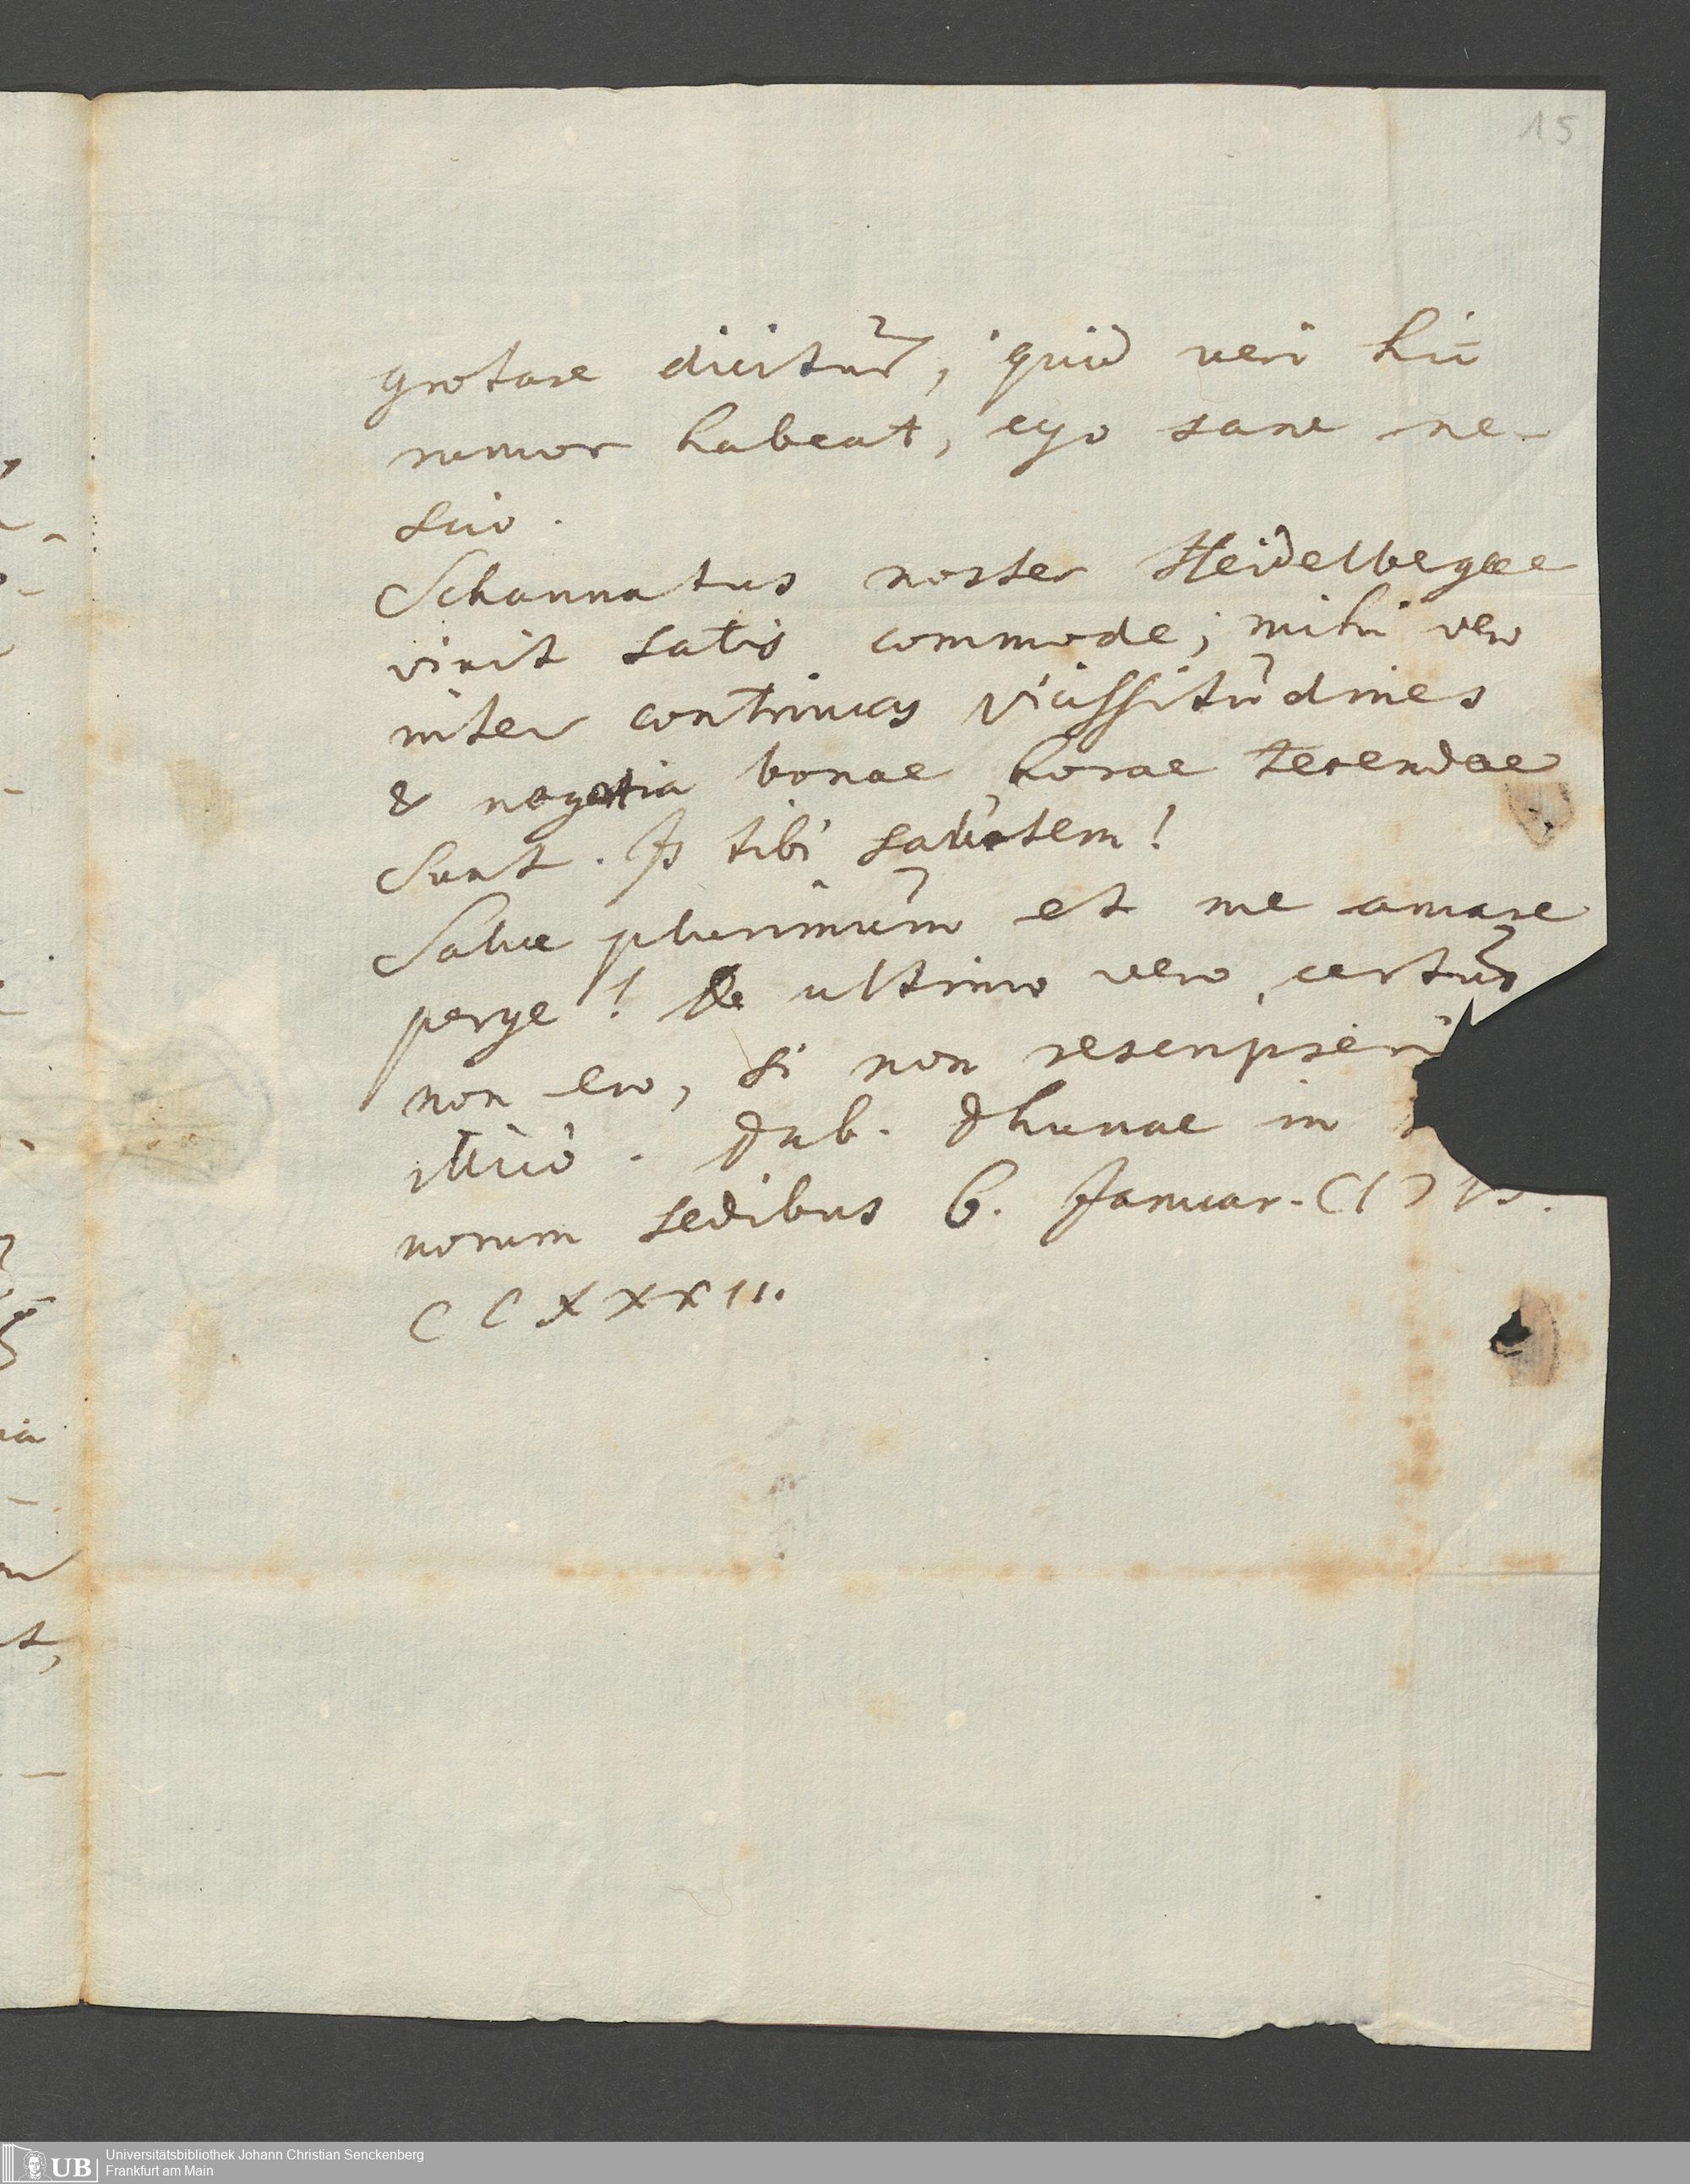 15
grotare dicitur, quid veri hic
rumor habeat, ego sane ne-
scio.
Schannatus noster Heidelbergae
vivit satis commode; mihi vero
inter continuas vicissitudines
& negotia bonae horae terendae
sunt. Is tibi salutem!
Salve plurimum et me amare
perge! De ultimo vero certus
non ero, si non rescripseri
illico. Dab. Dhunae in
norum sedibus 6. Januar. CIↃ IↃ.
CCXXXII.
UB Universitätsbibliothek Johann Christian Senckenberg
Frankfurt am Main